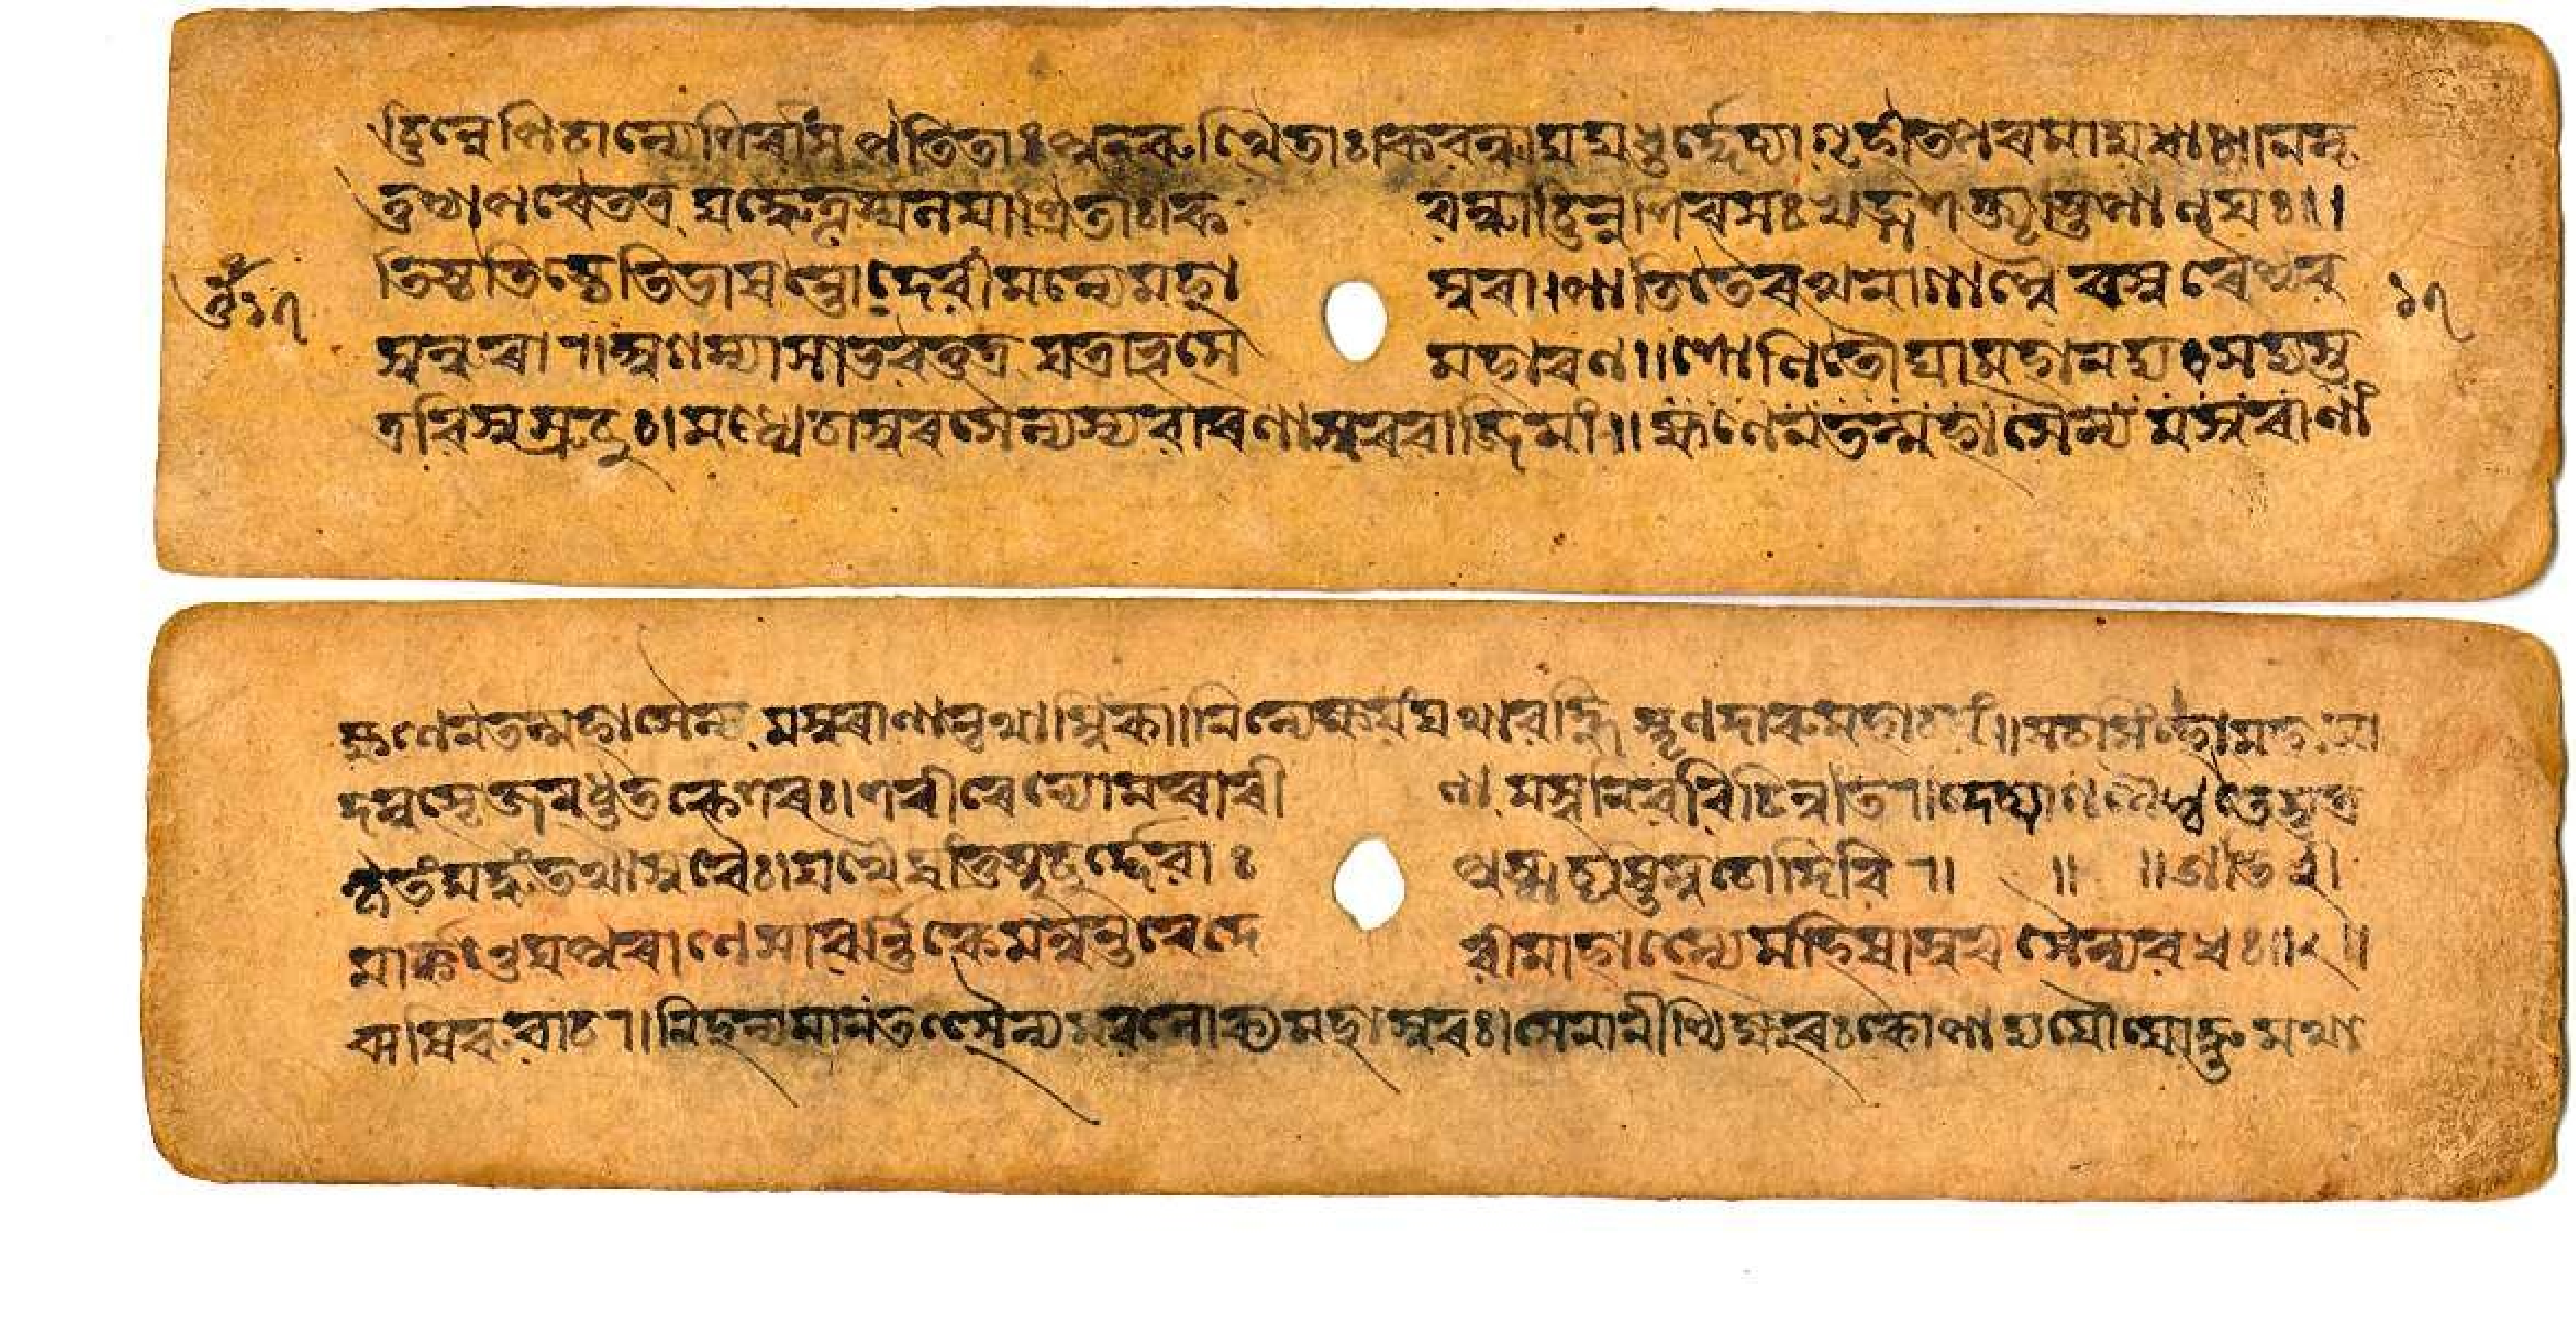 ছিন্নেপিচান্যেশিৰসি পতিতাঃপুনৰুত্থিতাঃ। কবন্ধাযুযুধুৰ্দ্দেব্যাগৃহীতপৰমাযুধাঃ। ননৃ
তুশ্চাপৰেতত্র যুদ্ধেতূৰ্য্যলযাশ্রিতাঃ। ক বন্ধাশ্ছিন্নশিৰসঃ খড্গশক্ত্যৃষ্টিপাণযঃ॥
তিষ্ঠতিষ্ঠেতিভাষন্তোদেবীমন্যেমহা সুৰাঃ। পাতিতৈৰথনাগাশ্বৈৰসুৰৈশ্চব
১৭ ১৭
সুন্ধৰা। অগম্যাসাভবত্তত্র যত্রাভূৎস মহাৰণঃ॥ শোণিতৌঘামহানদ্যঃসদ্যস্ত
ত্রবিসুস্রুবুঃ। মধ্যেচাসুৰসৈন্যস্যবাৰণাসুৰবাজিনাং॥ ক্ষণেনতন্মহাসৈন্যমসুৰাণাং
ক্ষণেনতন্মহাসৈন্যমসুৰাণান্তথাম্বিকা॥ নিন্যেক্ষযংযথাবহ্নিস্তৃণদাৰুমহাচযং॥ সচসিংহোমহানা
দমুৎসৃজনধুতকেশৰঃ। শৰীৰেভ্যোমৰাৰী ণামসূনিববিচিন্বতি॥ দেব্যাগণৈশ্চতৈস্তত্র
কৃতংযুদ্ধংতথাসুৰৈঃ। যথৈষাংতুষ্টুবুৰ্দ্দেবাঃ পুষ্পবৃষ্টিমুচোদিবি॥ ॥ ॥ ইতিশ্রী
মাৰ্কণ্ডেযপুৰাণেসাবৰ্ন্নিকেমন্বন্তৰেদে বীমাহাত্ম্যেমহিষাসুৰসৈন্যবধঃ॥২॥
ঋষিৰুবাচ॥ নিহন্যমানংতৎসৈন্যমবলোক্যমহাসুৰঃ। সেনানীশ্চিক্ষুৰঃকোপাদ্যযৌযোদ্ধুমথা